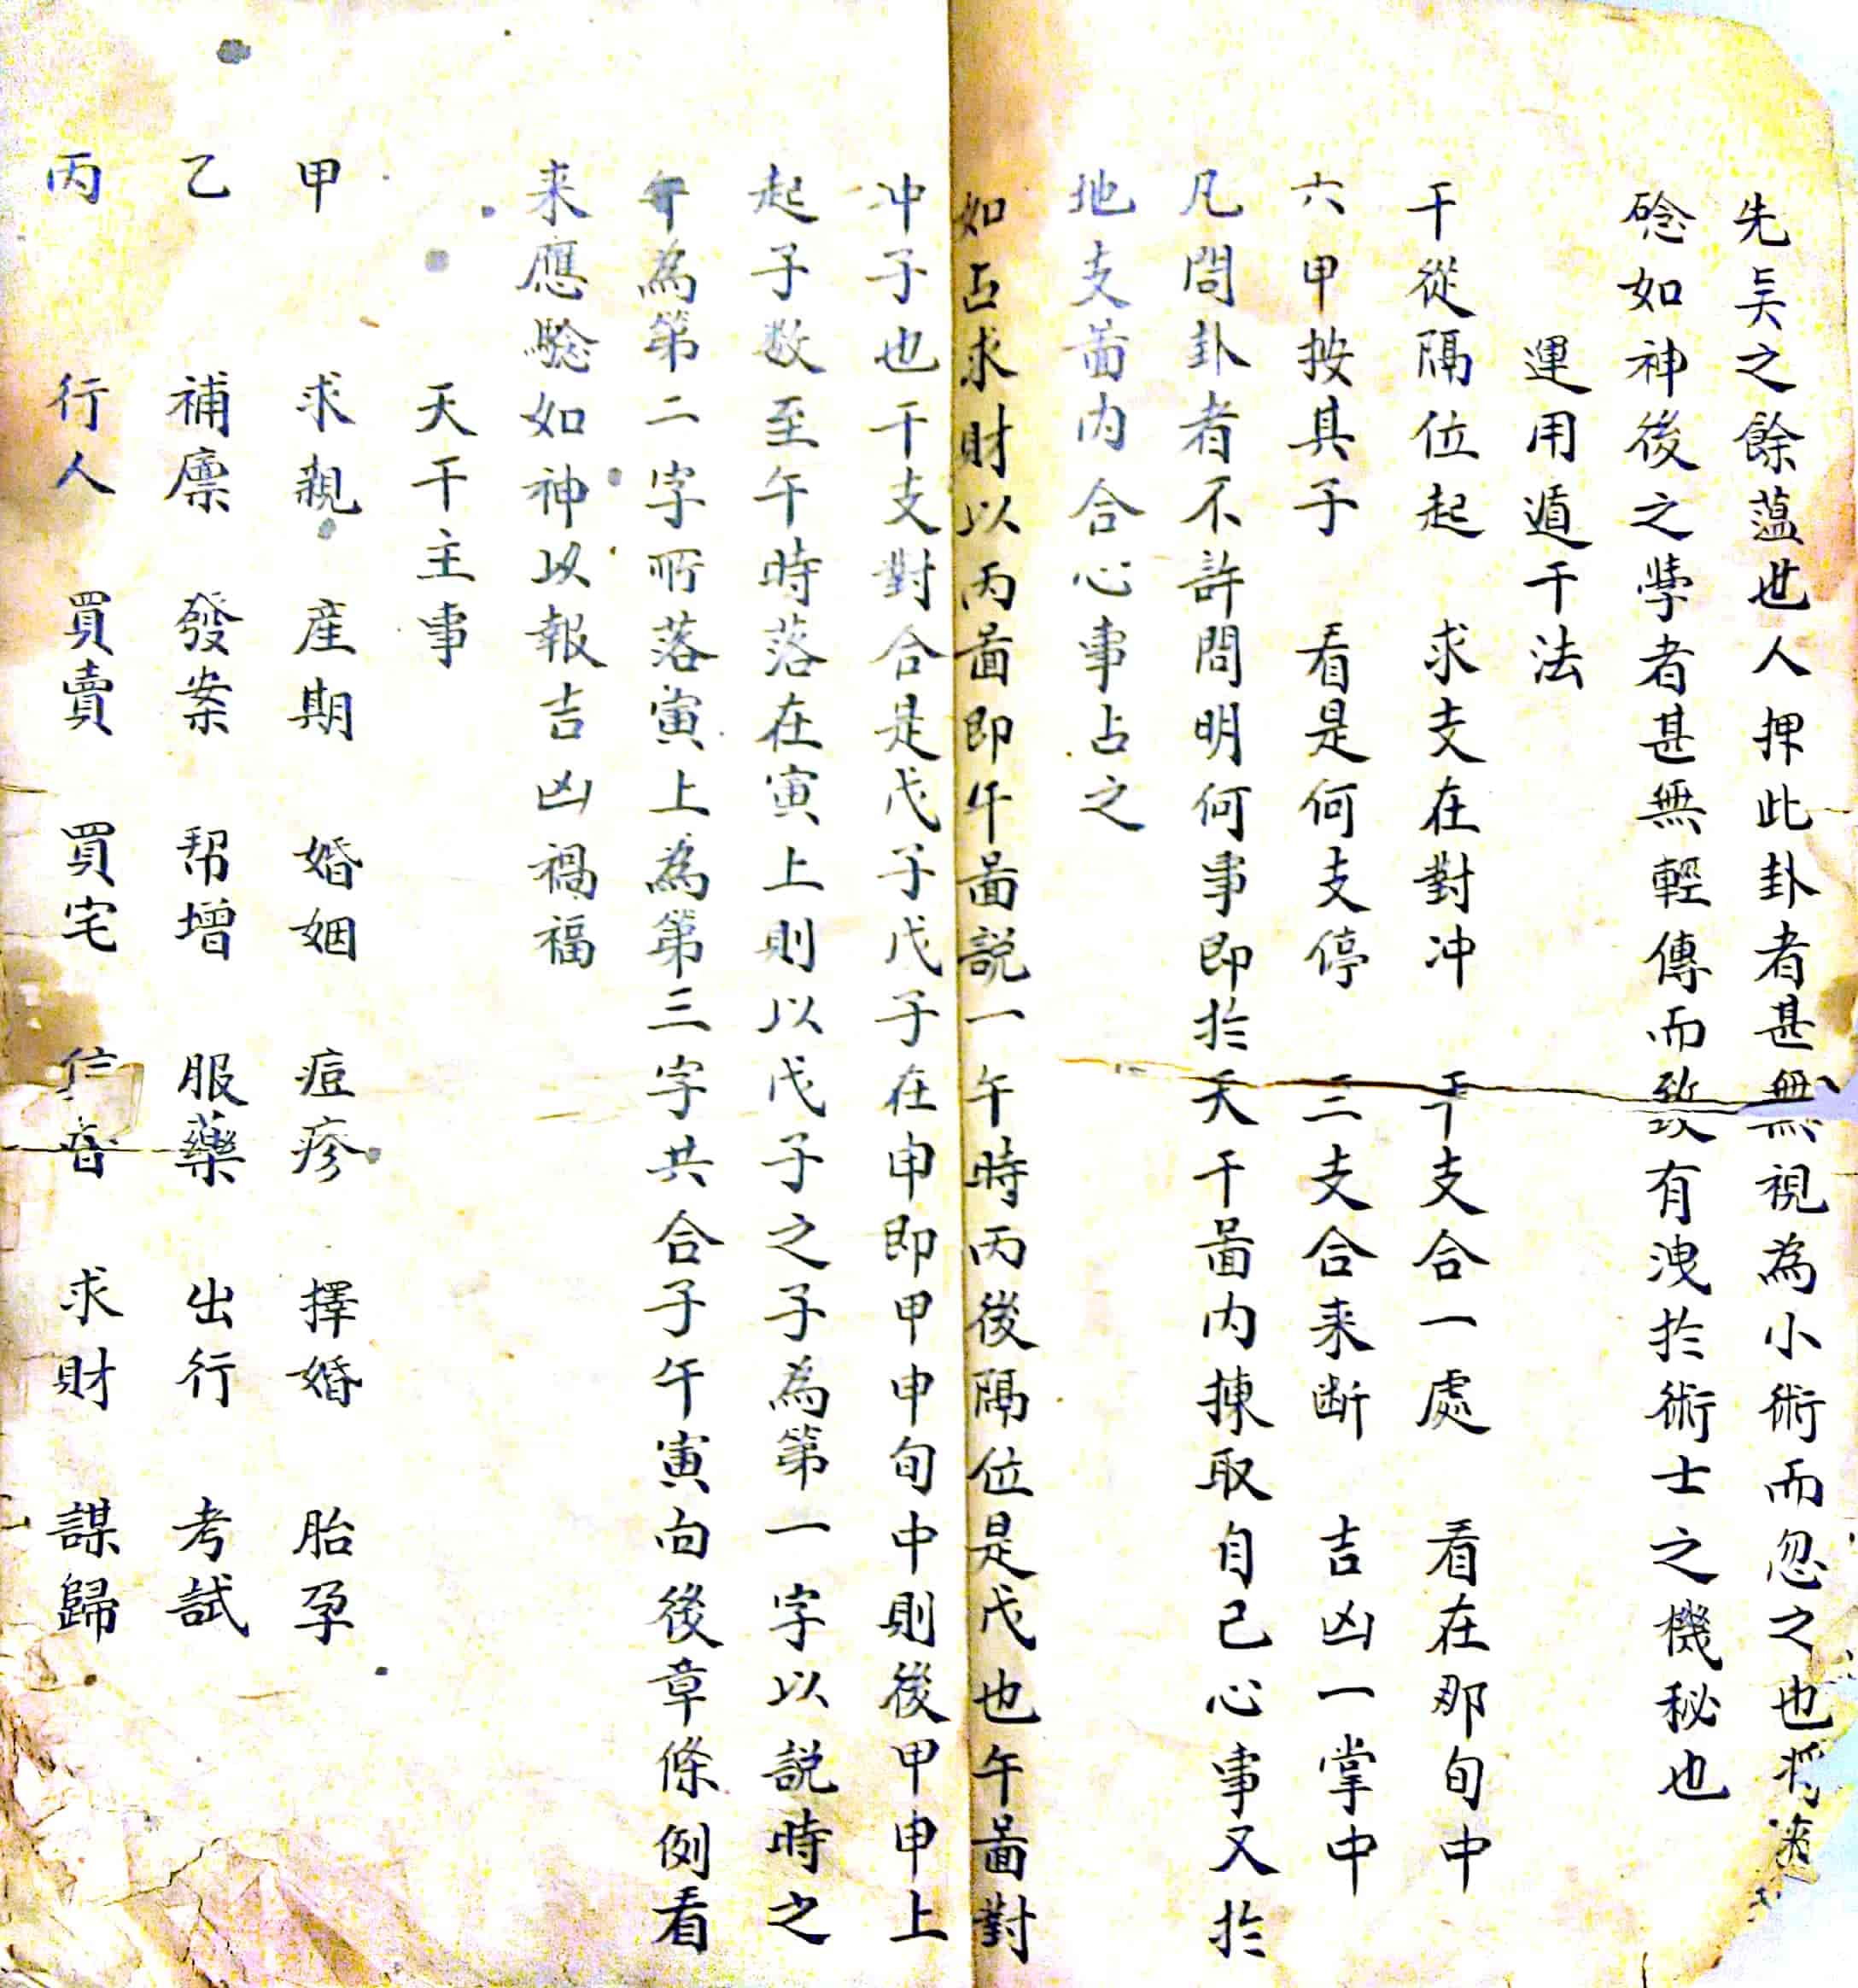 先矣之餘蘊世人押此卦者甚無視為小術而忽之也
硷如神後之學者甚無輕傳而致有洩於術士之機秘也
運用遁干法
干從隔位起 求支在對冲 干支合一處 看在那旬中
六甲按其子 看是何支停 三支合来断 吉凶一掌中
凡問卦者不許問明何事即於天干啚内揀取自己心事又於
地支啚内合心事占之
如占求財以丙啚即午啚説一午時丙後隔位是戊也午啚對
冲子也干支對合是戊子戊子在申即甲申旬中則後甲申上
起子数至午時落在寅上則以戊子之子為第一字以説時之
午為第二字所落寅上為第三字共合子午寅向後章條例看
来應驗如神以報吉凶禍福
天干主事
甲 求親 産期 婚姻 痘疹 擇婚 胎孕
乙 補廪 發案 幇增 服藥 出行 考試
丙 行人 買賣 買宅 信音 求財 謀歸